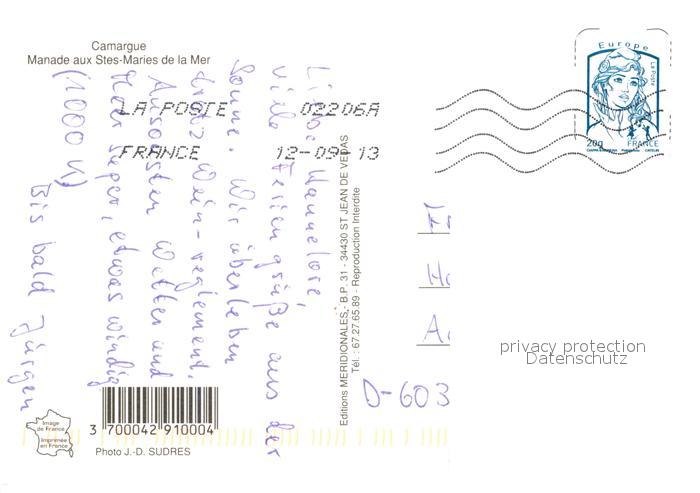 Camargue
Manade aux Stes-Maries de la Mer
Europe
La Poste
20g FRANCE
LA POSTE 02206A
FRANCE 12-09-13
Liebe Hannelore,
viele Feriengrüße aus der
Sonne. Wir überleben
trotz Wein-reglement,
Ansonsten Wetter und
Meer super, etwas windig
(1000 K)
Bis bald Jürgen
Editions MERIDIONALES - B.P. 31 - 34430 ST JEAN DE VEDAS
Tél.: 67.27.65.89 - Reproduction Interdite
D-603
privacy protection
Datenschutz
Image
de France
Imprimée
en France
3 700042 910004
Photo J.-D. SUDRES